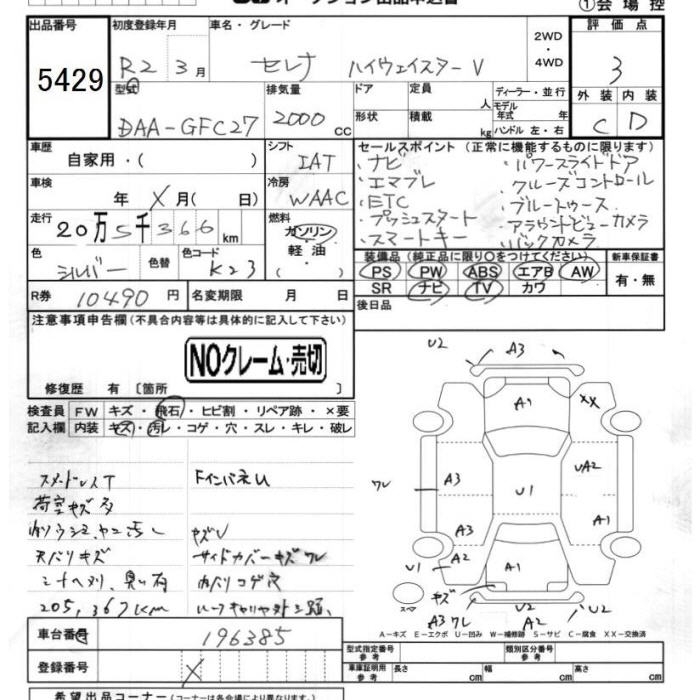 オークション出品申込書
①会場控
出品番号
5429
初度登録年月
R2 3月
車名・グレード
セレナ ハイウェイスターV
2WD
・
4WD
評価点
3
型式
DAA-GFC27
排気量
2000 cc
ドア
形状
定員 人
積載 kg
ディーラー・並行
モデル
年式 年
ハンドル 左・右
外装 内装
C D
車歴
自家用・( )
シフト
IAT
セールスポイント (正常に機能するものに限ります)
・ナビ
・エマブレ
・ETC
・プッシュスタート
・スマートキー
・パワースライドドア
・クルーズコントロール
・ブルートゥース
・アラウンドビューカメラ
・バックカメラ
車検
年 X月(日)
冷房
WAAC
走行
20万5千366km
燃料
ガソリン
軽油
( )
色
シルバー
色替
色コード
K23
装備品 (純正品に限り○をつけてください)
PS PW ABS エアB AW
SR ナビ TV カワ
新車保証書
有・無
R券 10490円
名変期限 月 日
後日品
注意事項申告欄(不具合内容等は具体的に記入して下さい)
NOクレーム・売切
修復歴 有 〔箇所 〕
検査員
記入欄
FW キズ・飛石・ヒビ割・リペア跡・×要
内装 キズ・汚レ・コゲ・穴・スレ・キレ・破レ
スペアドレスT
荷室キズ多
天バリキズ
205,367km
FインパネU
キズU
サイドカバーキズワレ
内バリコゲ穴
U2 A3
A1 XX
ワレ A3 UA2
U1
A3 A1
U1 A2 A1
キズ
A3ワレ U2 A2 U2
スペア
A-キズ E-エクボ U-凹み W-補修跡 S-サビ C-腐食 XX-交換済
車台番号 196385
登録番号 X
型式指定番号
参考
類別区分番号
参考
車庫証明用
参考
長さ 幅 高さ
希望出品コーナー(各会場により異なります)